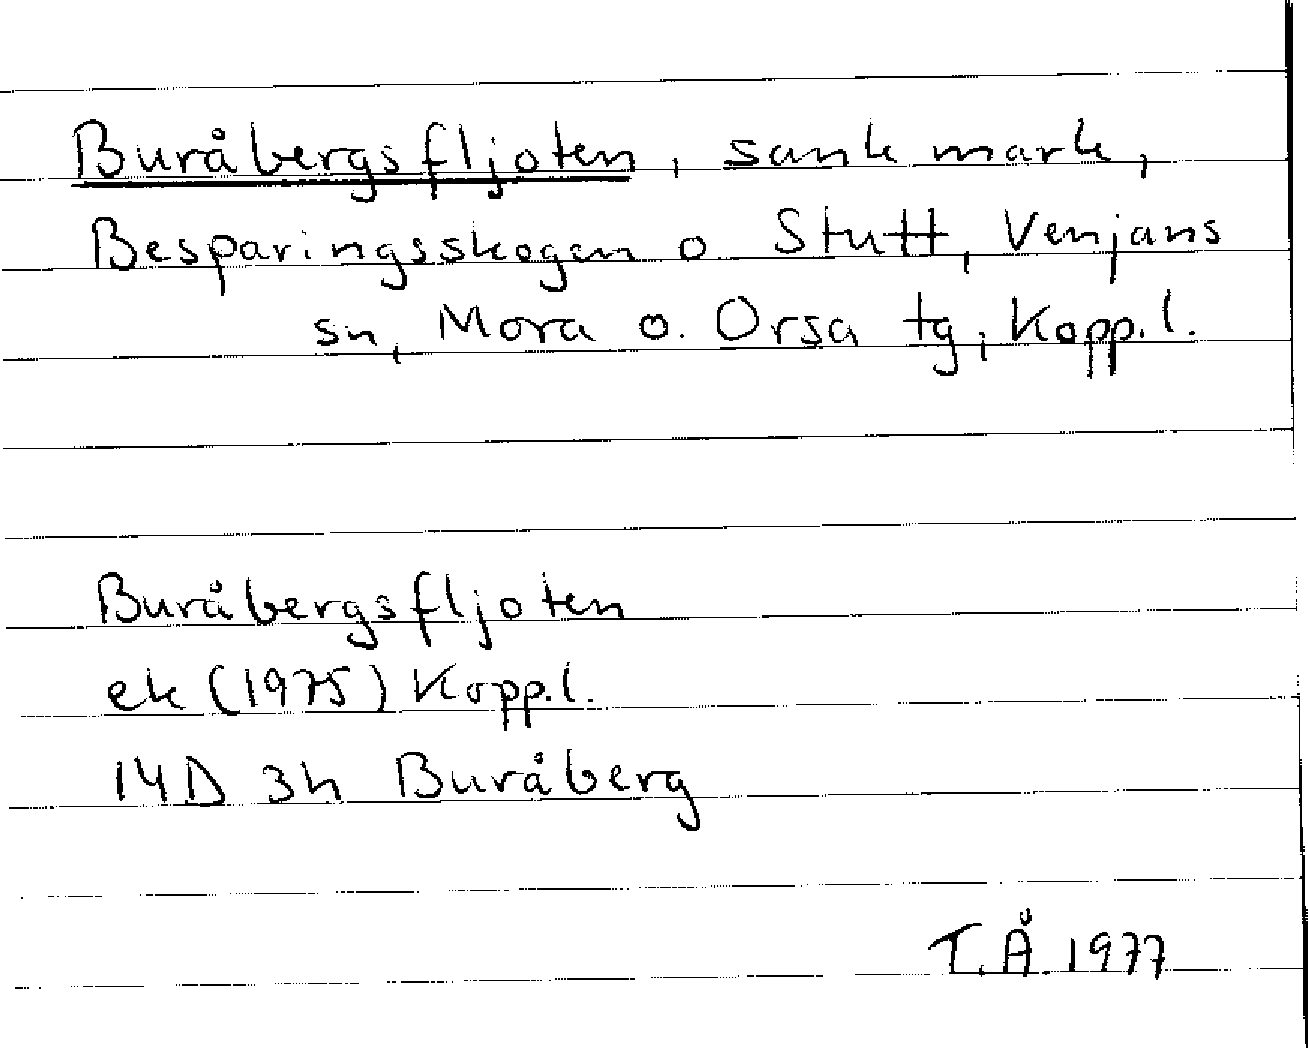 Buråbergsfljoten, sank mark,
Besparingsskogen o Stutt, Venjans
sn, Mora o. Orsa tg, Kopp.l.
Buråbergsfljoten
ek (1975) Kopp.l.
14D 3h Buråberg
T.Å. 1977